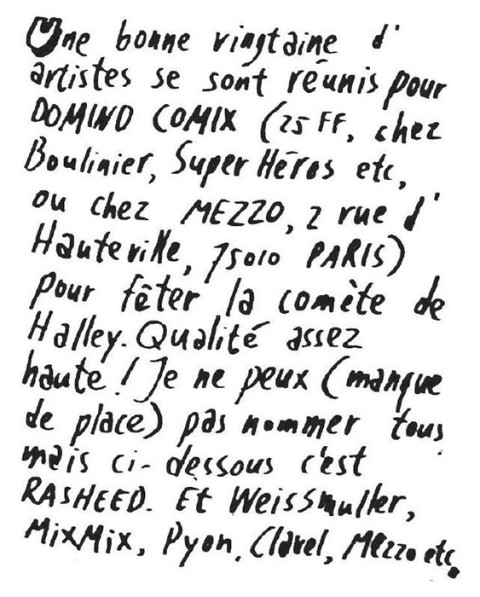 Une bonne vingtaine d'
artistes se sont réunis pour
DOMINO COMIX (25 FF, chez
Boulinier, Super Héros etc,
ou chez MEZZO, 2 rue d'
Hauteville, 75010 PARIS)
pour fêter la comète de
Halley. Qualité assez
haute ! Je ne peux (manque
de place) pas nommer tous
mais ci-dessous c'est
RASHEED. Et Weissmuller,
MixMix, Pyon, Clavel, Mezzo etc.